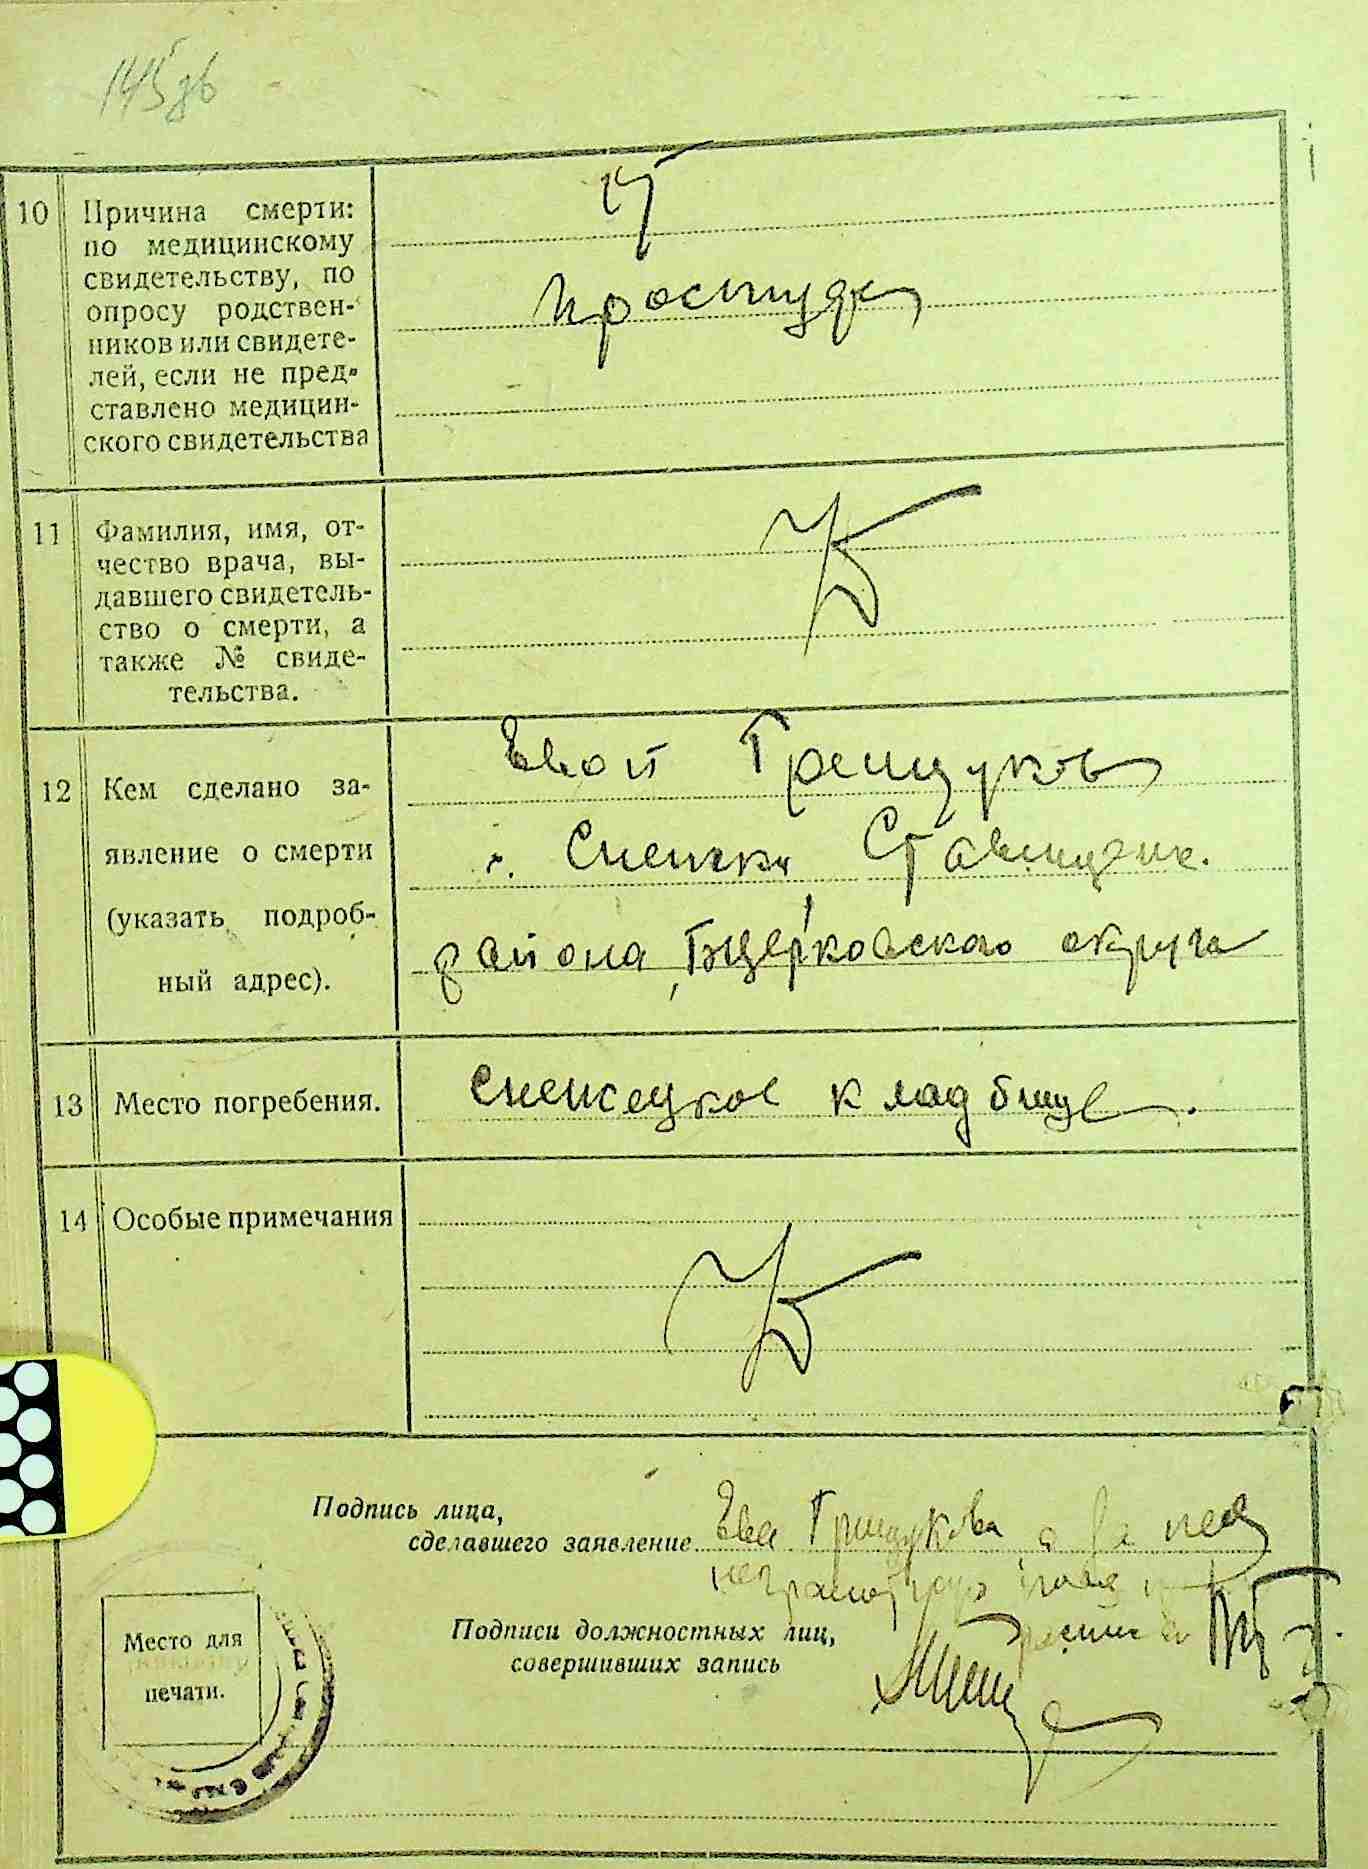 145 дв
10 Причина смерти:
по медицинскому
свидетельству, по
опросу родствен-
ников или свидете-
лей, если не пред-
ставлено медицин-
ского свидетельства
простуда
11 Фамилия, имя, от-
чество врача, вы-
давшего свидетель-
ство о смерти, а
также № свиде-
тельства.
12 Кем сделано за-
явление о смерти
(указать подроб-
ный адрес).
Евой Грещуков
с. Снежки, Ставищен.
района, Бцерковского округа
13 Место погребения.
Снежецкое кладбище.
14 Особые примечания
Подпись лица,
сделавшего заявление
Ева Грищукова а за нее
неграмотную
Подписи должностных лиц,
совершивших запись
Место для
печати.